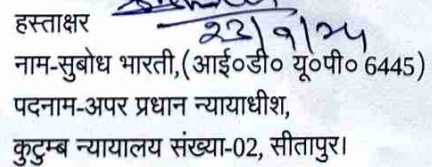 हस्ताक्षर
22/9/24
नाम-सुबोध भारती,(आई०डी० यू०पी० 6445)
पदनाम-अपर प्रधान न्यायाधीश,
कुटुम्ब न्यायालय संख्या-02, सीतापुर।